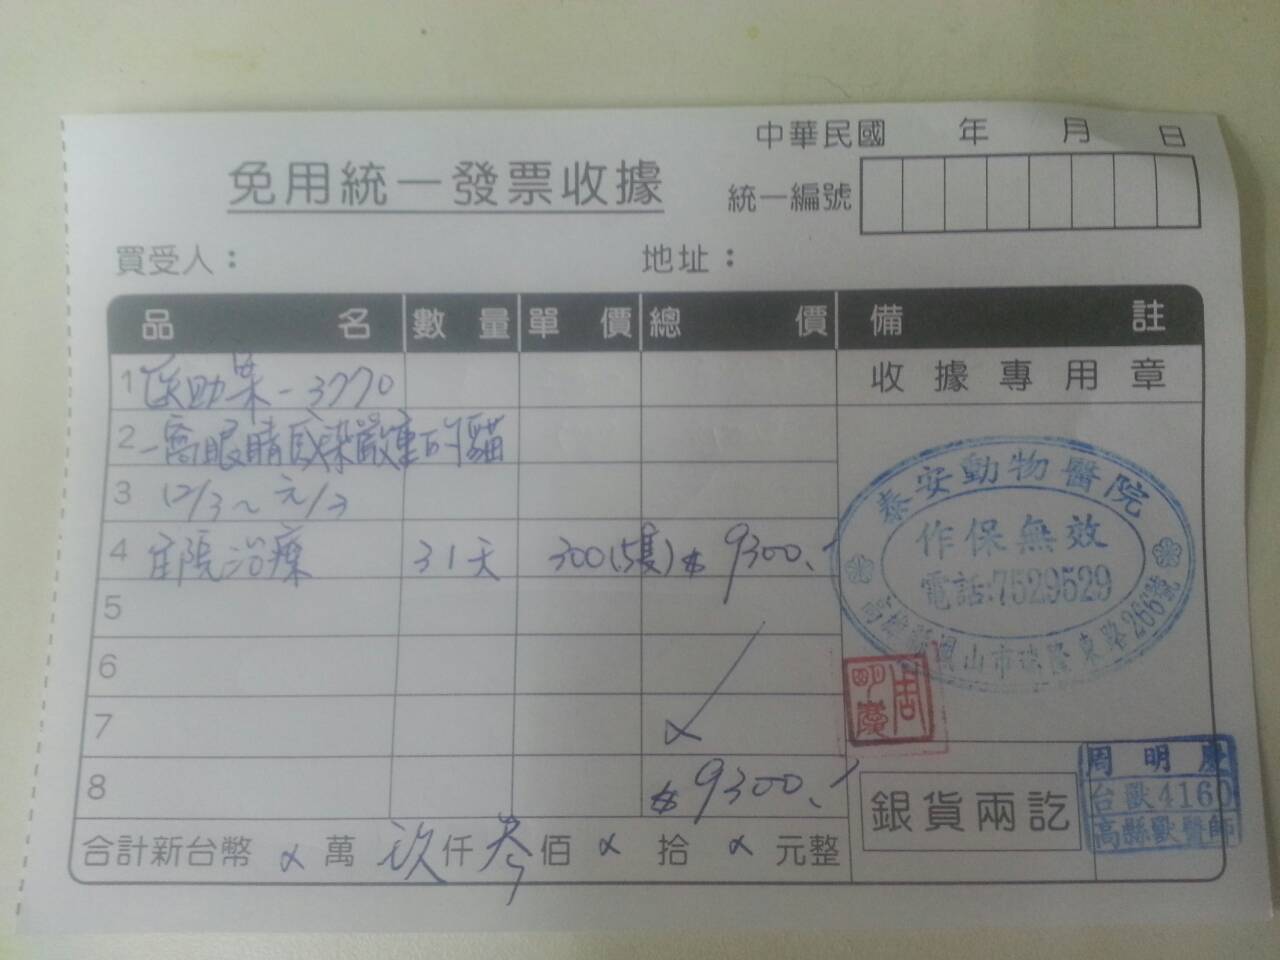 中華民國 年 月 日
免用統一發票收據
統一編號
買受人： 地址：
品名 數量 單價 總價 備註
1 医助案-3770 收據專用章
2 一窩眼睛感染嚴重的貓
3 12/3~元/3
4 住院治療 31天 300(5隻) $9300.
泰安動物醫院
作保無效
電話:7529529
鳳山市瑞隆東路266號
5
6
7
周明慶
8 $9300.
銀貨兩訖
周明慶
台獸4160
高縣獸醫師
合計新台幣 萬 玖仟叁佰 拾 元整